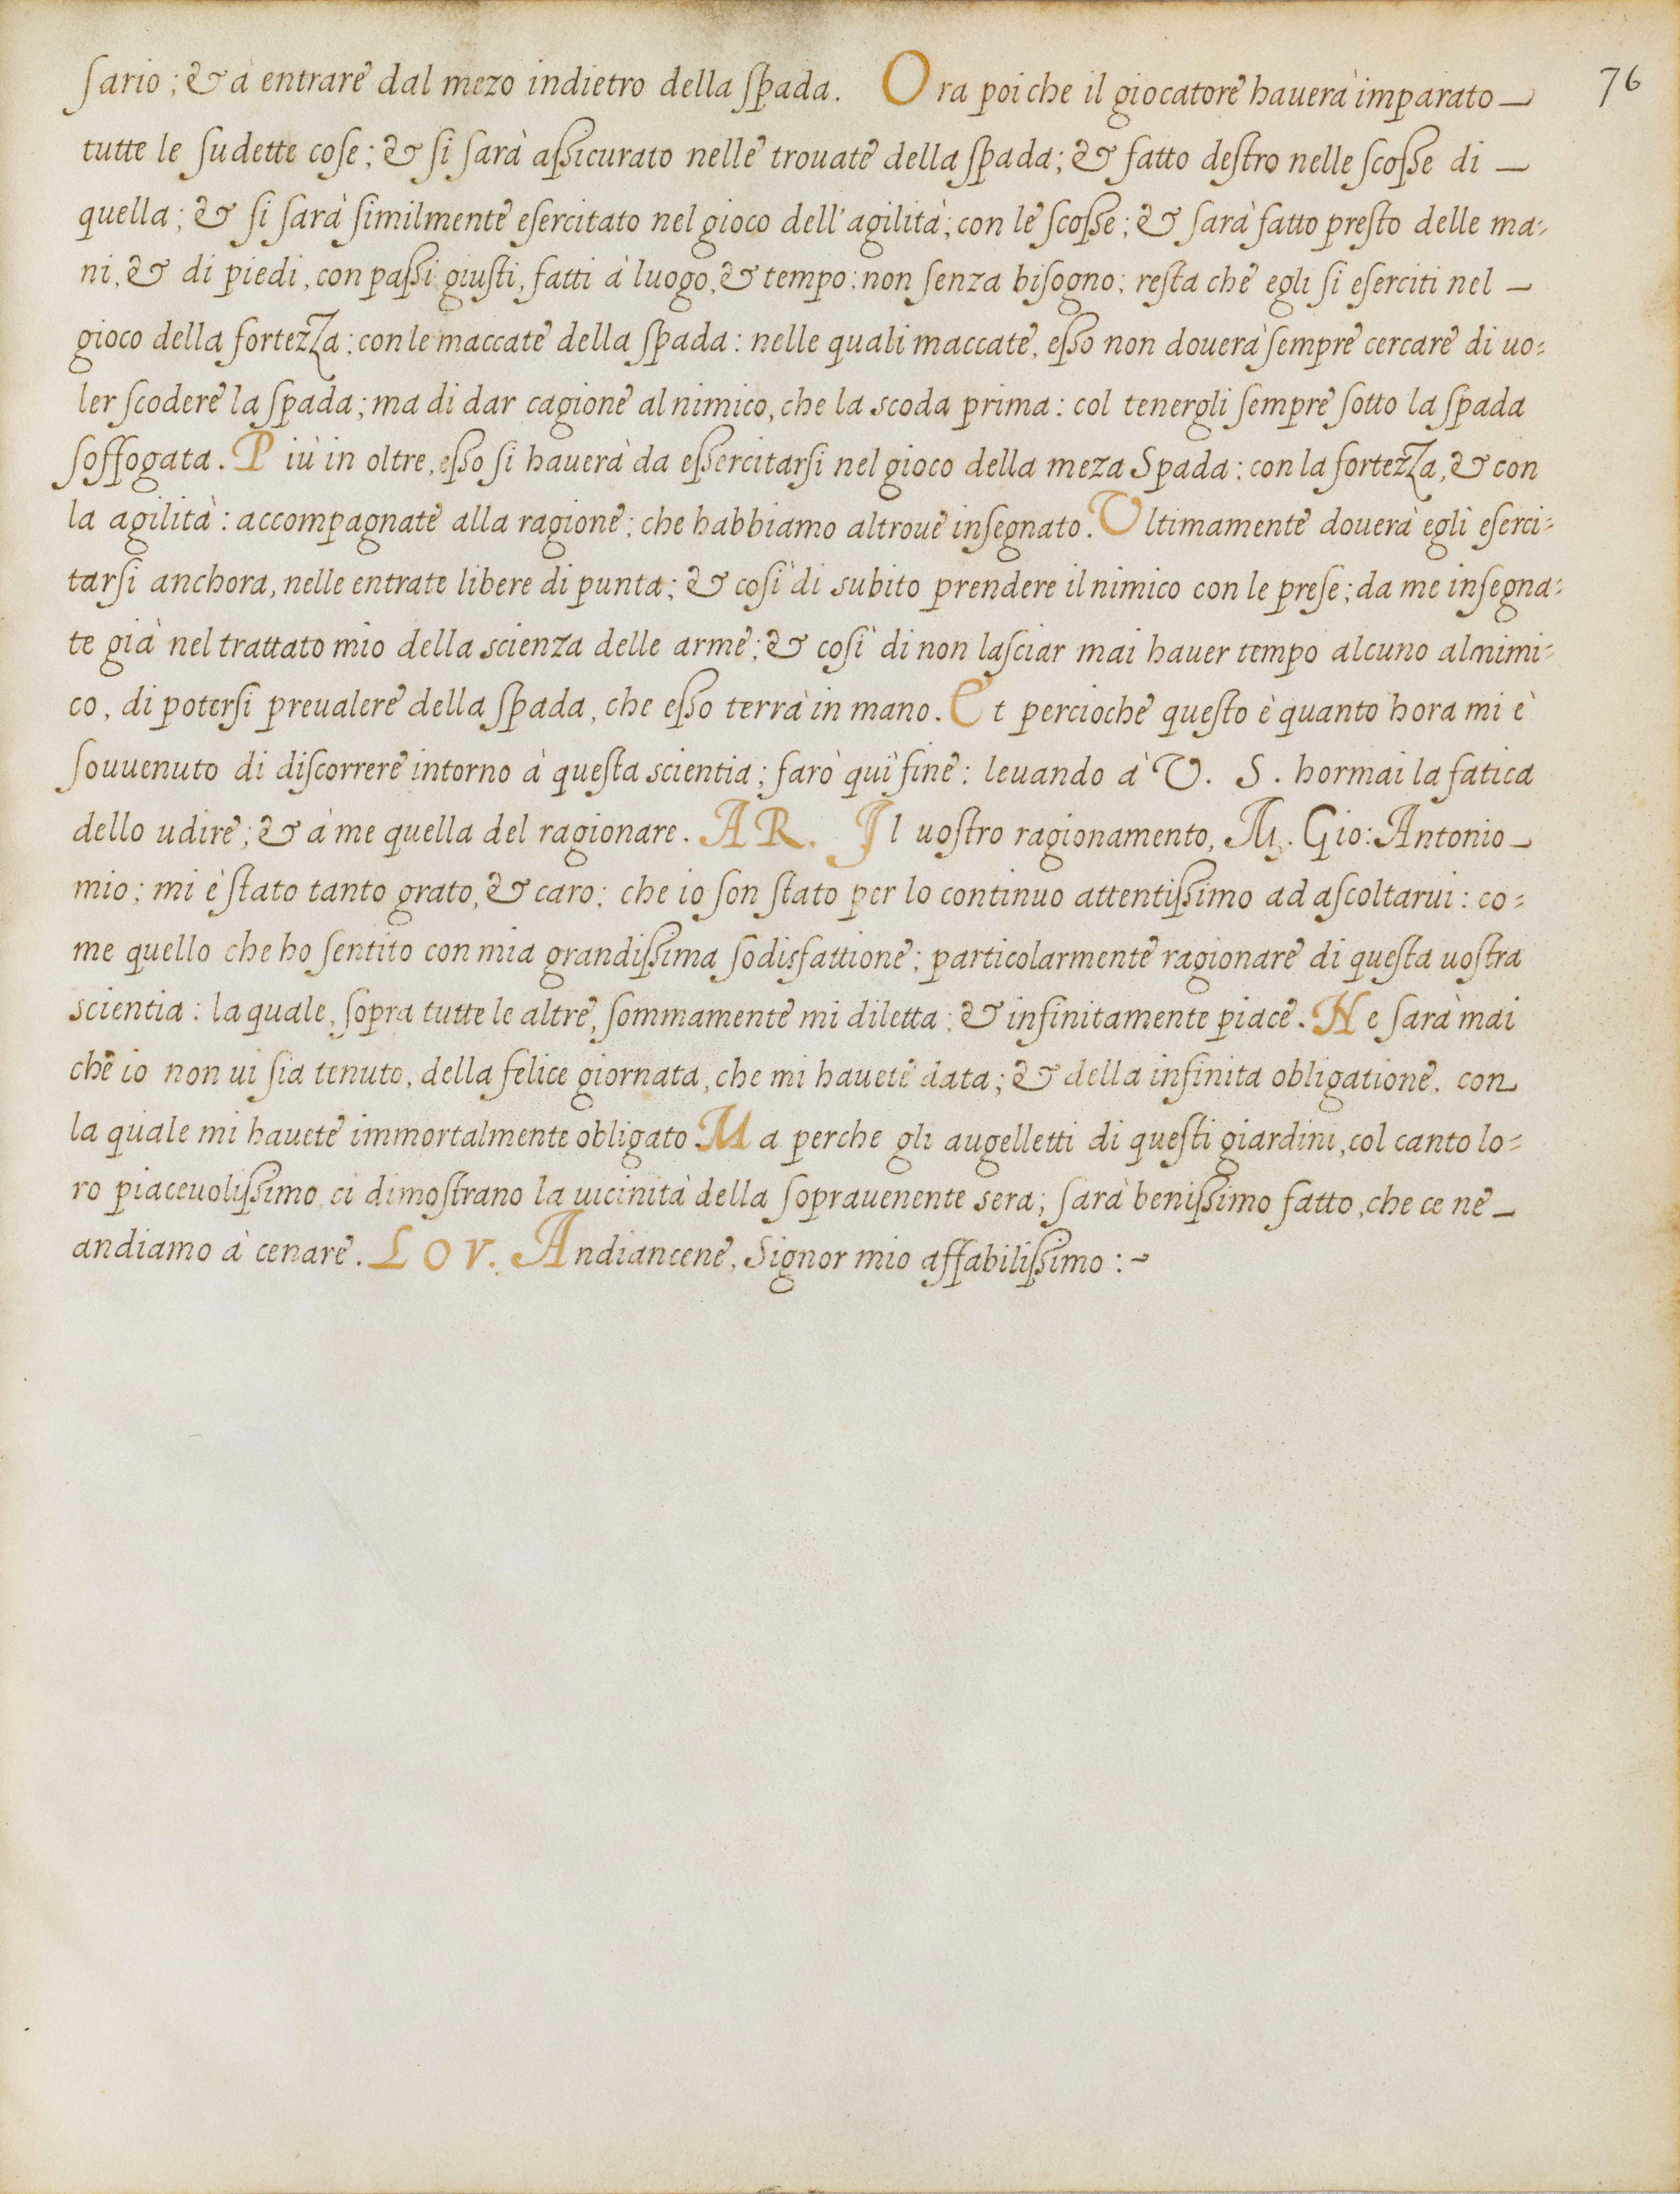 sario; & à entrare dal mezo indietro della spada. Ora poi che il giocatore hauerà imparato 76
tutte le sudette cose; & si sarà assicurato nelle trouate della spada; & fatto destro nelle scosse di
quella; & si sarà similmente esercitato nel gioco dell'agilità; con le scosse; & sarà fatto presto delle ma=
ni, & di piedi, con passi giusti, fatti à luogo, & tempo: non senza bisogno; resta che egli si eserciti nel
gioco della fortezza: con le maccate della spada: nelle quali maccate, esso non douerà sempre cercare di uo=
ler scodere la spada; ma di dar cagione al nimico, che la scoda prima: col tenergli sempre sotto la spada
soffogata. Più in oltre, esso si hauerà da essercitarsi nel gioco della meza Spada: con la fortezza, & con
la agilità: accompagnate alla ragione; che habbiamo altroue insegnato. Ultimamente douerà egli eserci=
tarsi anchora, nelle entrate libere di punta; & così di subito prendere il nimico con le prese; da me insegna=
te già nel trattato mio della scienza delle arme; & così di non lasciar mai hauer tempo alcuno al nimi=
co, di potersi preualere della spada, che esso terrà in mano. Et percioche questo è quanto hora mi è
souuenuto di discorrere intorno à questa scientia; farò quì fine: leuando à V. S. hormai la fatica
dello udire; & à me quella del ragionare. AR. Il uostro ragionamento, M. Gio: Antonio
mio; mi è stato tanto grato, & caro; che io son stato per lo continuo attentissimo ad ascoltarui: co=
me quello che ho sentito con mia grandissima sodisfattione; particolarmente ragionare di questa uostra
scientia: la quale, sopra tutte le altre, sommamente mi diletta; & infinitamente piace. Ne sarà mai
che io non ui sia tenuto, della felice giornata, che mi hauete data; & della infinita obligatione, con
la quale mi hauete immortalmente obligato. Ma perche gli augelletti di questi giardini, col canto lo=
ro piaceuolissimo, ci dimostrano la uicinità della soprauenente sera; sarà benissimo fatto, che ce ne
andiamo à cenare. LOV. Andiancene, Signor mio affabilissimo :~